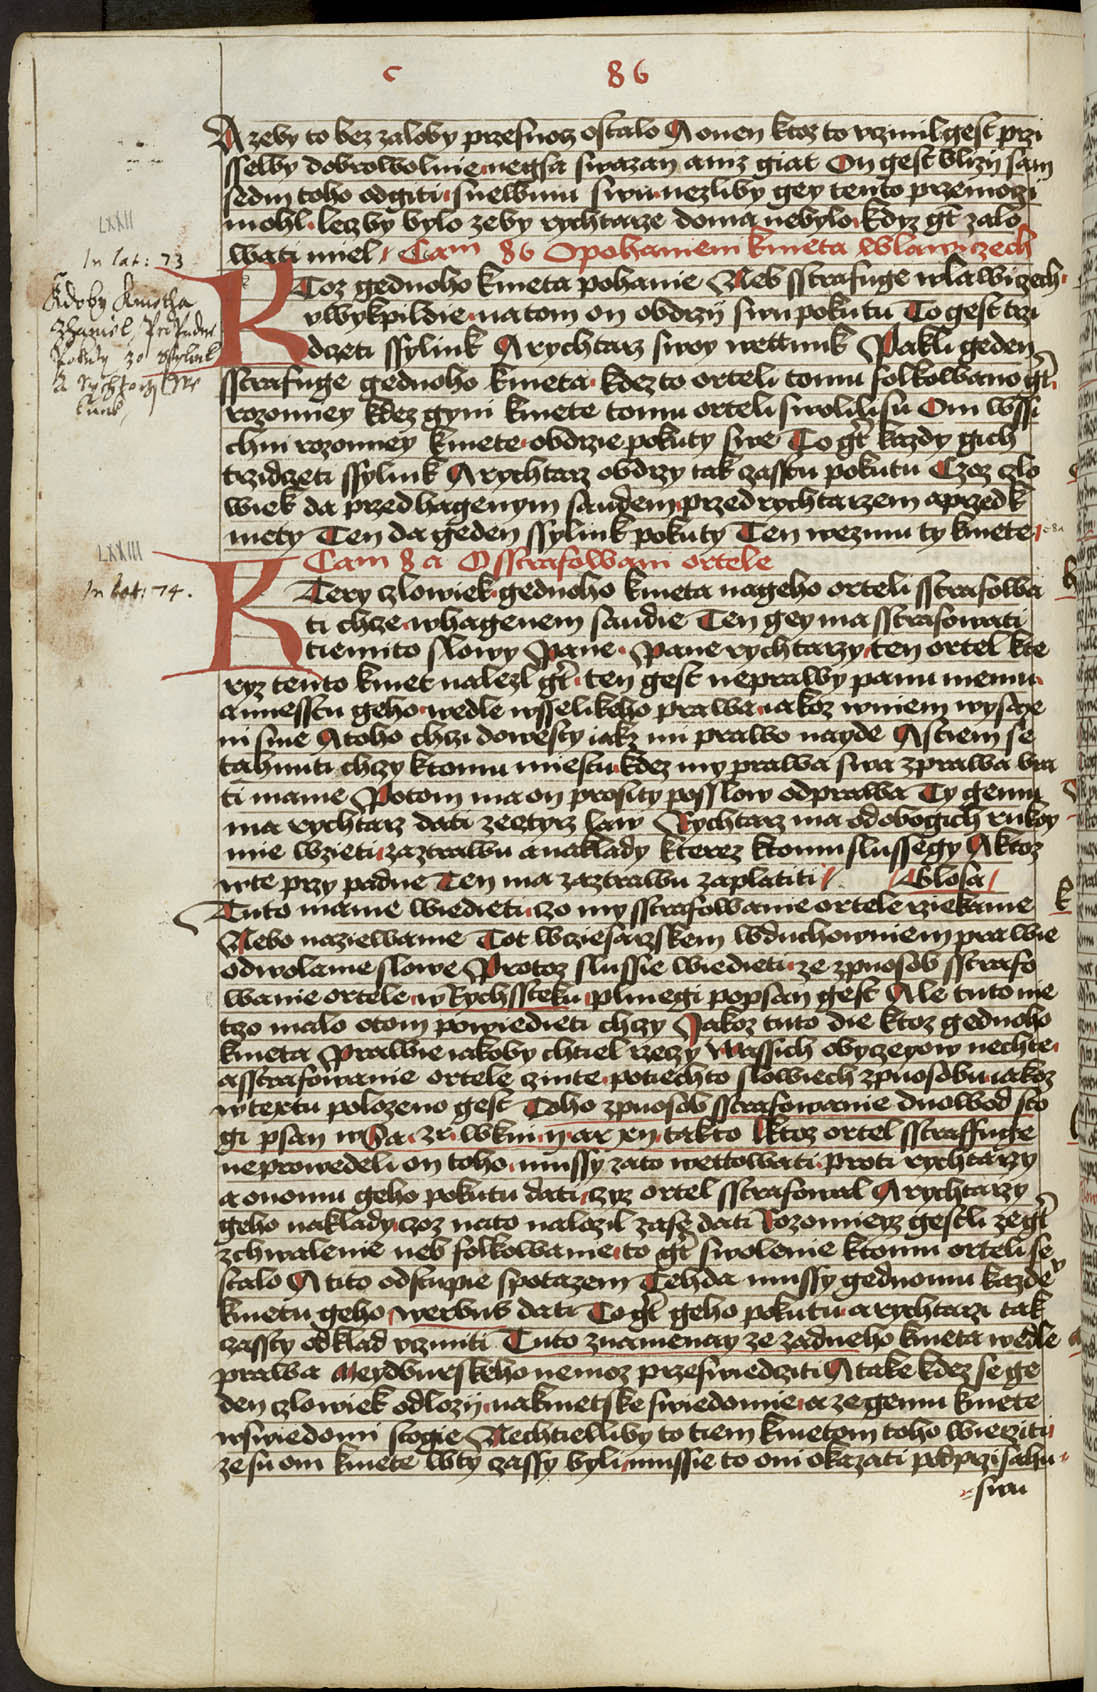 c 86
A zeby to bez zaloby przesnocz ostalo A onen ktoz to vczinil gest przi
sselby dobrowolnie negsa swazan aniz giat On gest blizij sam
sedm toho odgiti snewinu swu nezliby gey tento przemoczi
mohl leczby bylo zeby rychtarze doma nebylo kdyz gt zalo
wati miel Cam 86 O pohaniem kmeta wlawiczech
LXXII
In lat: 73
Kdoby Kmetha
zhaniel
Pokuty 30 ssylink
a Rychtarzy We
tunk
KToz gednoho kmeta pohanie Neb sstrafuge wlawiczech
vwykpildie natom on obdrzij swu pokutu To gest trzi
dczeti ssylink A rychtarz swoy wettunk Pakli geden
sstrafuge gednoho kmeta kdezto orteli tomu folkowano gt
rozomiey kdez gyni kmete tomu orteli swolilisu Oni wssi
chni rozomiey kmete obdrzie pokuty swe To gt kazdy gich
trzidczeti ssylink A rychtarz obdrzy tak czastu pokutu Czoz czlo
wiek da przed hagenym saudem przed rychtarzem a przed k
mety Ten da geden ssylink pokuty Ten wezmu ty kmete
LXXIII
In lat: 74.
Cam 8a O sstrafowani ortele
KTery czlowiek gednoho kmeta nageho orteli sstrafowa
ti chcze whagenem saudie Ten gey ma sstrafowati
tiemito slowy Pane Pane rychtarzy ten ortel kte
ryz tento kmet nalezl gt ten gest neprawy panu memu
a miestu geho wedle wsselikeho prawa iakoz wniem wysaze
ni sme A toho chczi dowesty iakz mi prawo nayde A stiem se
tahnuti chczy ktomu miestu kdez my prawa swa zprawa bra
ti mame Potom ma on prosyty posslow odprawa Ty gemu
ma rychtarz dati zecztyrz law Rychtarz ma odobogich rukoy
mie wzieti zaztrawu a naklady kterez ktomu slussegy A ktoz
wte przy padne Ten ma zaztrawu zaplatiti Glosa
Tuto mame wiedieti czo my sstrafowanie ortele rziekame
Nebo naziewame Tot wcziesarzskem wduchowniem prawie
odwolanie slowe Protoz slussie wiedieti ze zpuosob sstrafo
wanie ortele w Rychssteku plniegi popsan gest Ale tuto nie
tzo malo otom powiedieti chczy Jakoz tuto die ktoz gednoho
kmeta Prawie iakoby chtiel rzeczy Wassich obyczegow nechte
a sstrafowanie ortele czinte potiechto slowiech zpuosobu iakoz
wtextu polozeno gest Toho zpuosob sstrafowanie duowod sto
gi psan w Sa. zr. wkni. ii. ar xii takto Ktoz ortel sstraffuge
neprowedeli on toho mussy zato wettowati proti rychtarzy
a onomu geho pokutu dati czyz ortel sstrafowal A rychtarzy
geho naklady czoz nato nalozil zase dati Rozomiey gestli ze gt
zchwalenie neb folkowanie to gt swolenie ktomu orteli se
stalo A tito odstupie spotazem Tehda mussy gednomu kazde
kmetu geho werbus dati To gt geho pokutu a rychtarzi tak
czasty odklad vczniti Tuto znamenay ze zadneho kmeta wedle
prawa Meydburskeho nemoz przeswiedcziti A take kdez se ge
den czlowiek odlozij nakmetske swiedomie a ze gemu kmete
wswiedomi stogie Nechtielliby to tiem kmetom toho wierziti
ze su oni kmete wty czassy byli mussie to oni okazati pod przisahu
swu